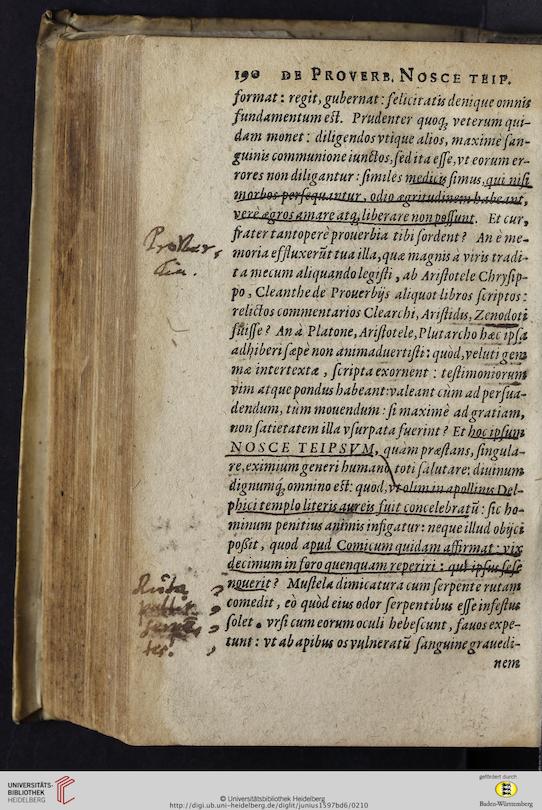 190 DE PROVERB. NOSCE TEIP.
format: regit, gubernat: felicitatis denique omnis
fundamentum est. Prudenter quoq, veterum qui-
dam monet: diligendos vtique alios, maximè san-
guinis communione iunctos, sed ita esse, vt eorum er-
rores non diligantur: similes medicis simus, qui nisi
morbos persequantur, odio ægritudinem habeant,
verè ægros amare atq, liberare non possunt. Et cur,
frater tantoperè prouerbia tibi sordent? An è me-
moria effluxerūt tua illa, quæ magnis à viris tradi-
ta mecum aliquando legisti, ab Aristotele Chrysip-
po, Cleanthe de Prouerbijs aliquot libros scriptos:
relictos commentarios Clearchi, Aristidis, Zenodoti
fuisse? An à Platone, Aristotele, Plutarcho hæc ipsa
adhiberi sæpè non animaduertisti: quòd, veluti gem
mæ intertextæ, scripta exornent: testimoniorum
vim atque pondus habeant: valeant cùm ad persua-
dendum, tùm mouendum: si maximè ad gratiam,
non satietatem illa vsurpata fuerint? Et hoc ipsum
NOSCE TEIPSVM, quàm præstans, singula-
re, eximium generi humano, toti salutare: diuinum
dignumq, omnino est: quod, vt olim in apollinis Del-
phici templo literis aureis fuit concelebratū: sic ho-
minum penitius animis insigatur: neque illud obijci
poßit, quod apud Comicum quidam affirmat: vix
decimum in foro quenquam reperiri: qui ipsus sese
nouerit? Mustela dimicatura cum serpente rutam
comedit, eò quòd eius odor serpentibus esse infestus
solet. vrsi cum eorum oculi hebescunt, fauos expe-
tunt: vt ab apibus os vulneratū sanguine grauedi-
nem
Ruta
UNIVERSITÄTS-
BIBLIOTHEK
HEIDELBERG
© Universitätsbibliothek Heidelberg
http://digi.ub.uni-heidelberg.de/diglit/junius1597bd6/0210
gefördert durch
Baden-Württemberg